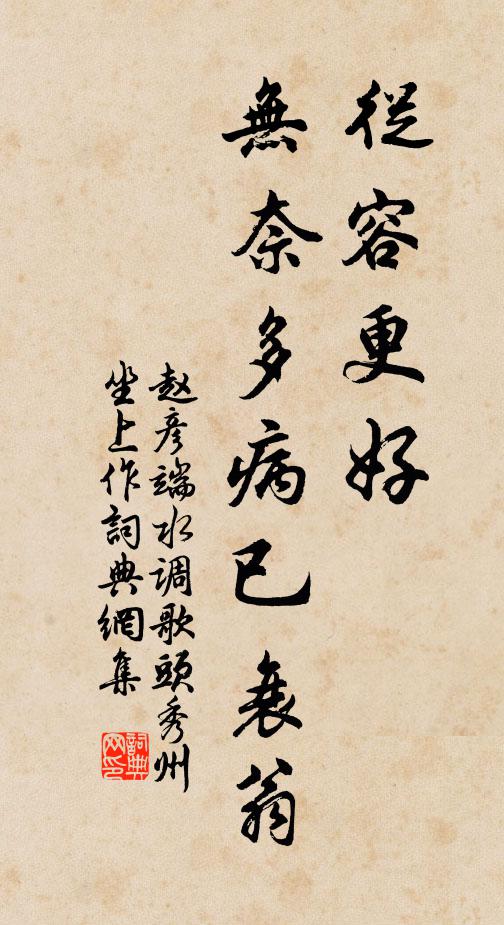 從容更好
無奈多病已衰翁
赵彦端水调歌頭秀州
坐上作詞典網集
詞典网印